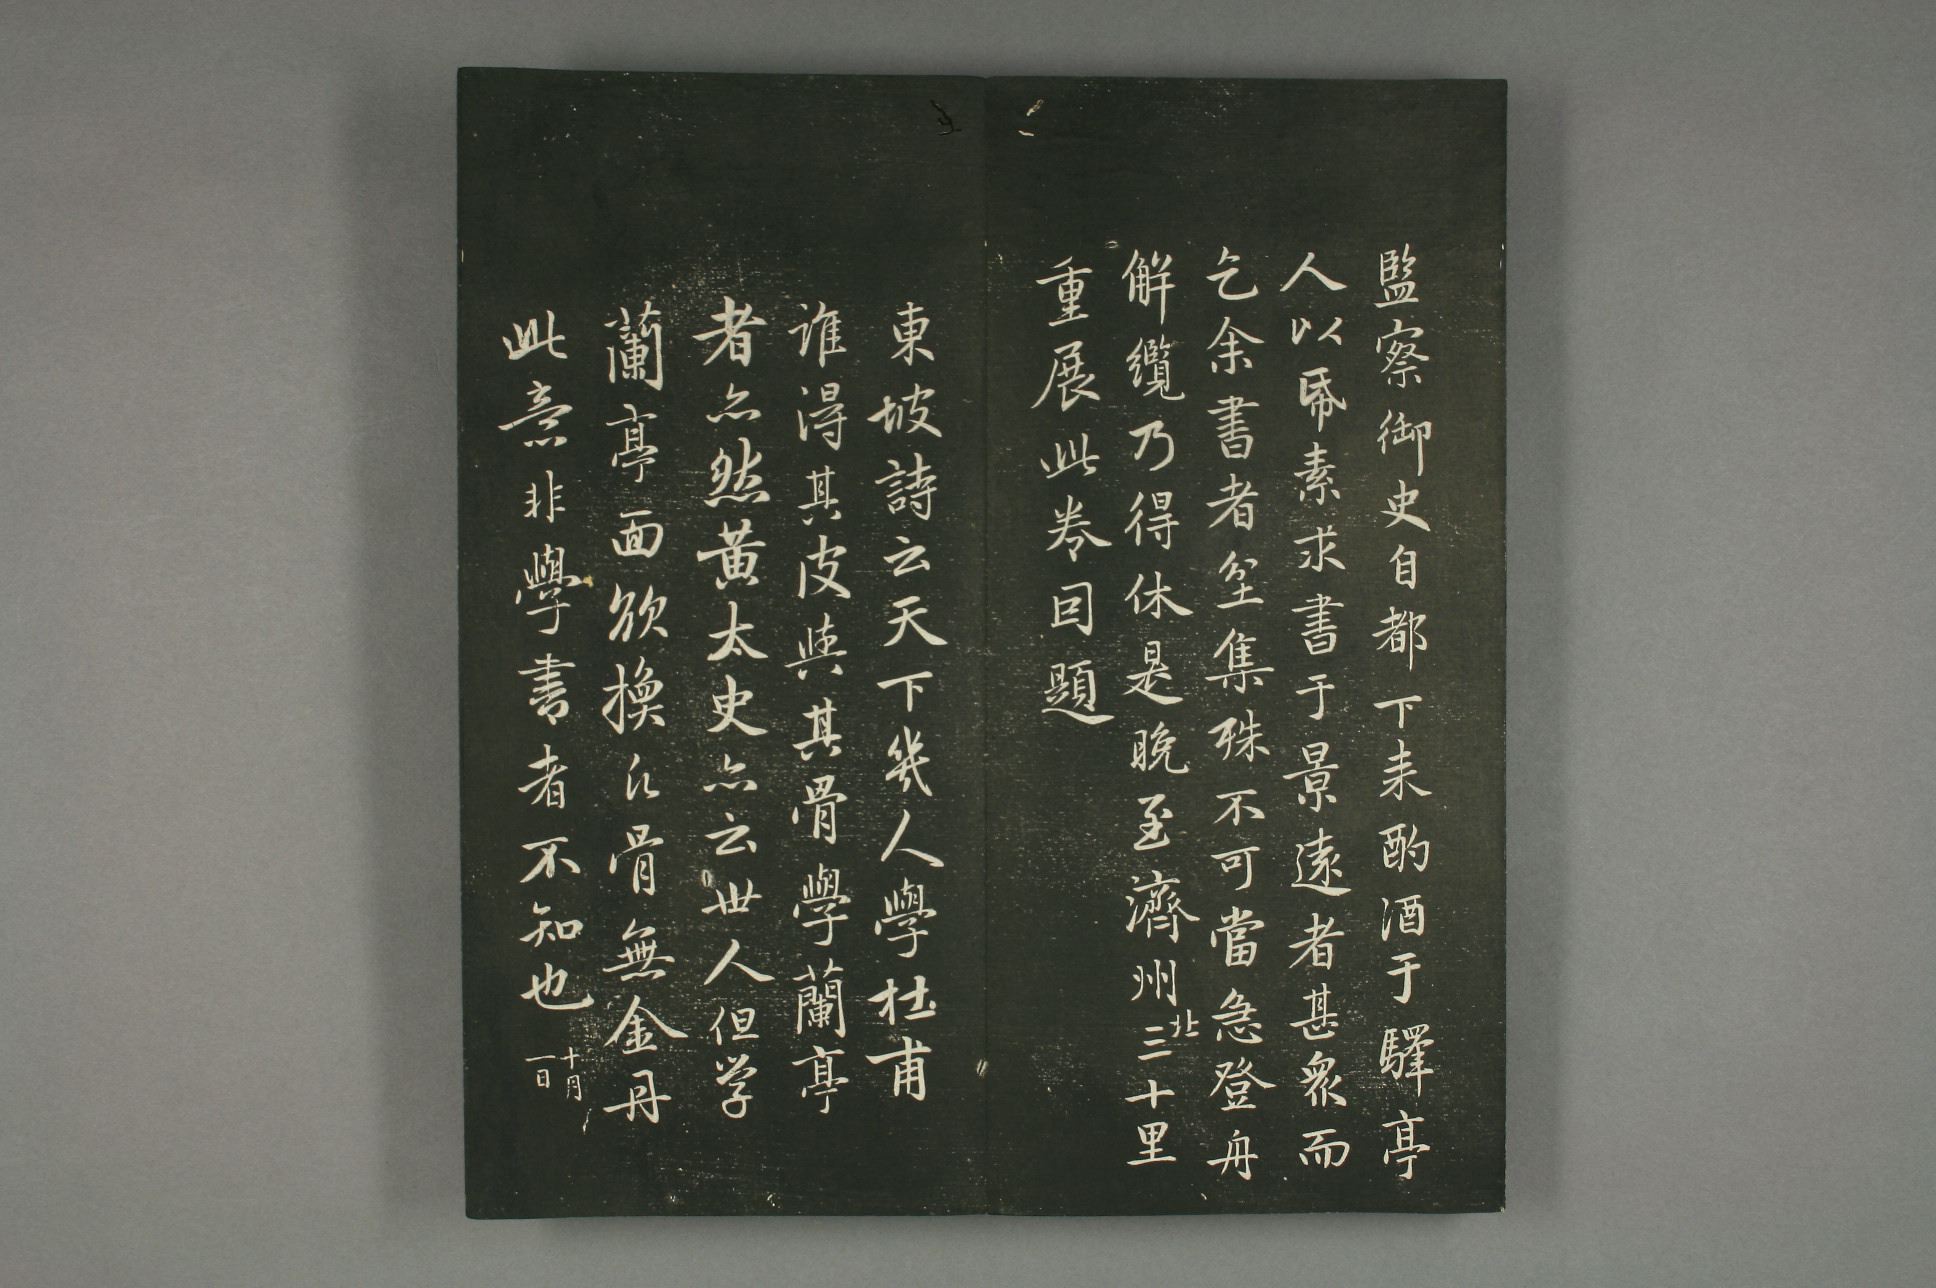 監察御史自都下来酌酒于驛亭
人以帋素求書于景遠者甚衆而
乞余書者坌集殊不可當急登舟
解纜乃得休是晚至濟州北三十里
重展此卷因題
東坡詩云天下幾人學杜甫
誰得其皮與其骨學蘭亭
者亦然黄太史亦云世人但学
蘭亭面欲換凡骨無金丹
此意非學書者不知也十月
一日